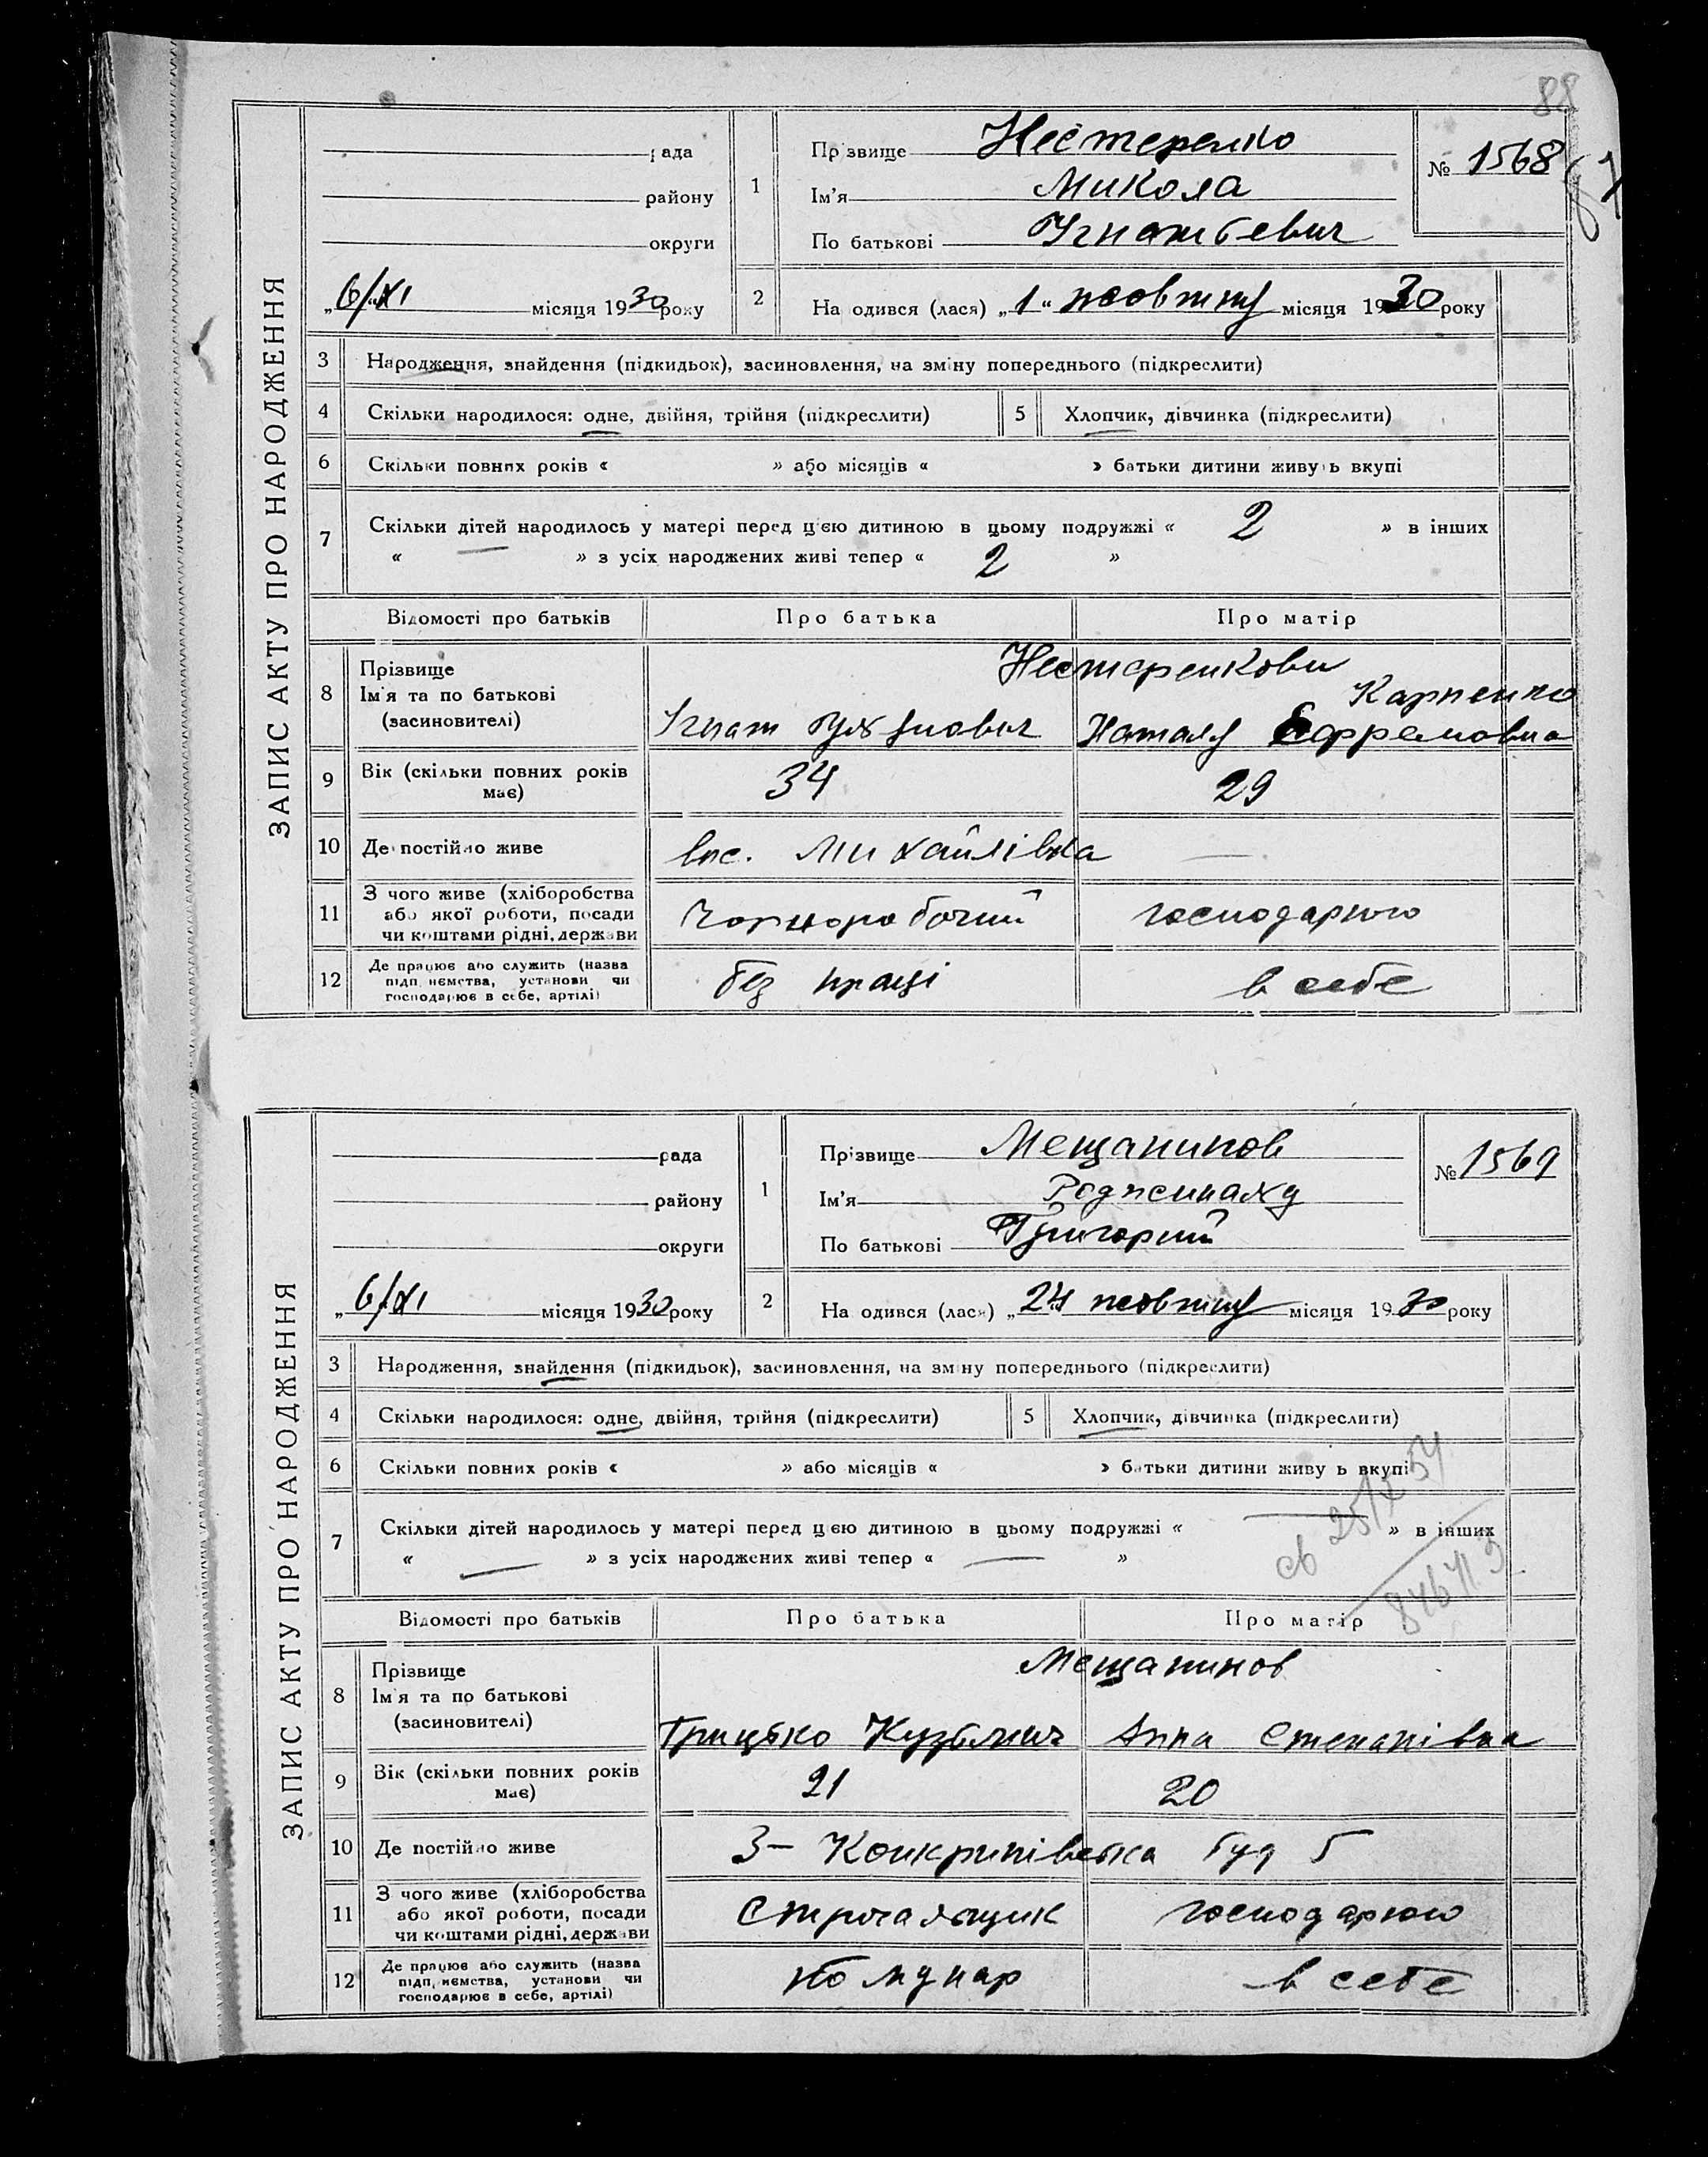 88
ЗАПИС АКТУ ПРО НАРОДЖЕННЯ
рада
району
округи
„6/XI місяця 1930 року
1
Прізвище Нестеренко
Ім'я Микола
По батькові Ігнатьевич
№ 1568
2
Народився (лася) „1“ жовтня місяця 1930 року
3 Народження, знайдення (підкидьок), засиновлення, на зміну попереднього (підкреслити)
4 Скільки народилося: одне, двійня, трійня (підкреслити) 5 Хлопчик, дівчинка (підкреслити)
6 Скільки повних років « » або місяців « » батьки дитини живуть вкупі
7 Скільки дітей народилось у матері перед цією дитиною в цьому подружжі « 2 » в інших
« — » з усіх народжених живі тепер « 2 »
Відомості про батьків Про батька Про матір
8 Прізвище Ім'я та по батькові (засиновителі)
Нестеренкови
Карпенко
Ігнат Наталя Ефремовна
9 Вік (скільки повних років має) 34 29
10 Де постійно живе вис. Михайлівка —
11 З чого живе (хліборобства або якої роботи, посади чи коштами рідні, держави Чорноробочий господарюю
12 Де працює або служить (назва підприємства, установи чи господарює в себе, артілі) без праці в себе
ЗАПИС АКТУ ПРО НАРОДЖЕННЯ
рада
району
округи
„6/XI місяця 1930 року
1
Прізвище Мещанинов
Ім'я Роджинальд
По батькові Григорий
№ 1569
2
Народився (лася) „24 жовтня місяця 1930 року
3 Народження, знайдення (підкидьок), засиновлення, на зміну попереднього (підкреслити)
4 Скільки народилося: одне, двійня, трійня (підкреслити) 5 Хлопчик, дівчинка (підкреслити)
6 Скільки повних років « » або місяців « » батьки дитини живуть вкупі
7 Скільки дітей народилось у матері перед цією дитиною в цьому подружжі « — » в інших
« — » з усіх народжених живі тепер « — »
св 25/X 54
Відомості про батьків Про батька Про матір
8 Прізвище Ім'я та по батькові (засиновителі)
Мещанинов
Грицько Кузьмич Анна Степанівна
9 Вік (скільки повних років має) 21 20
10 Де постійно живе 3 — буд 5
11 З чого живе (хліборобства або якої роботи, посади чи коштами рідні, держави Строгальщик господарюю
12 Де працює або служить (назва підприємства, установи чи господарює в себе, артілі) Комунар в себе